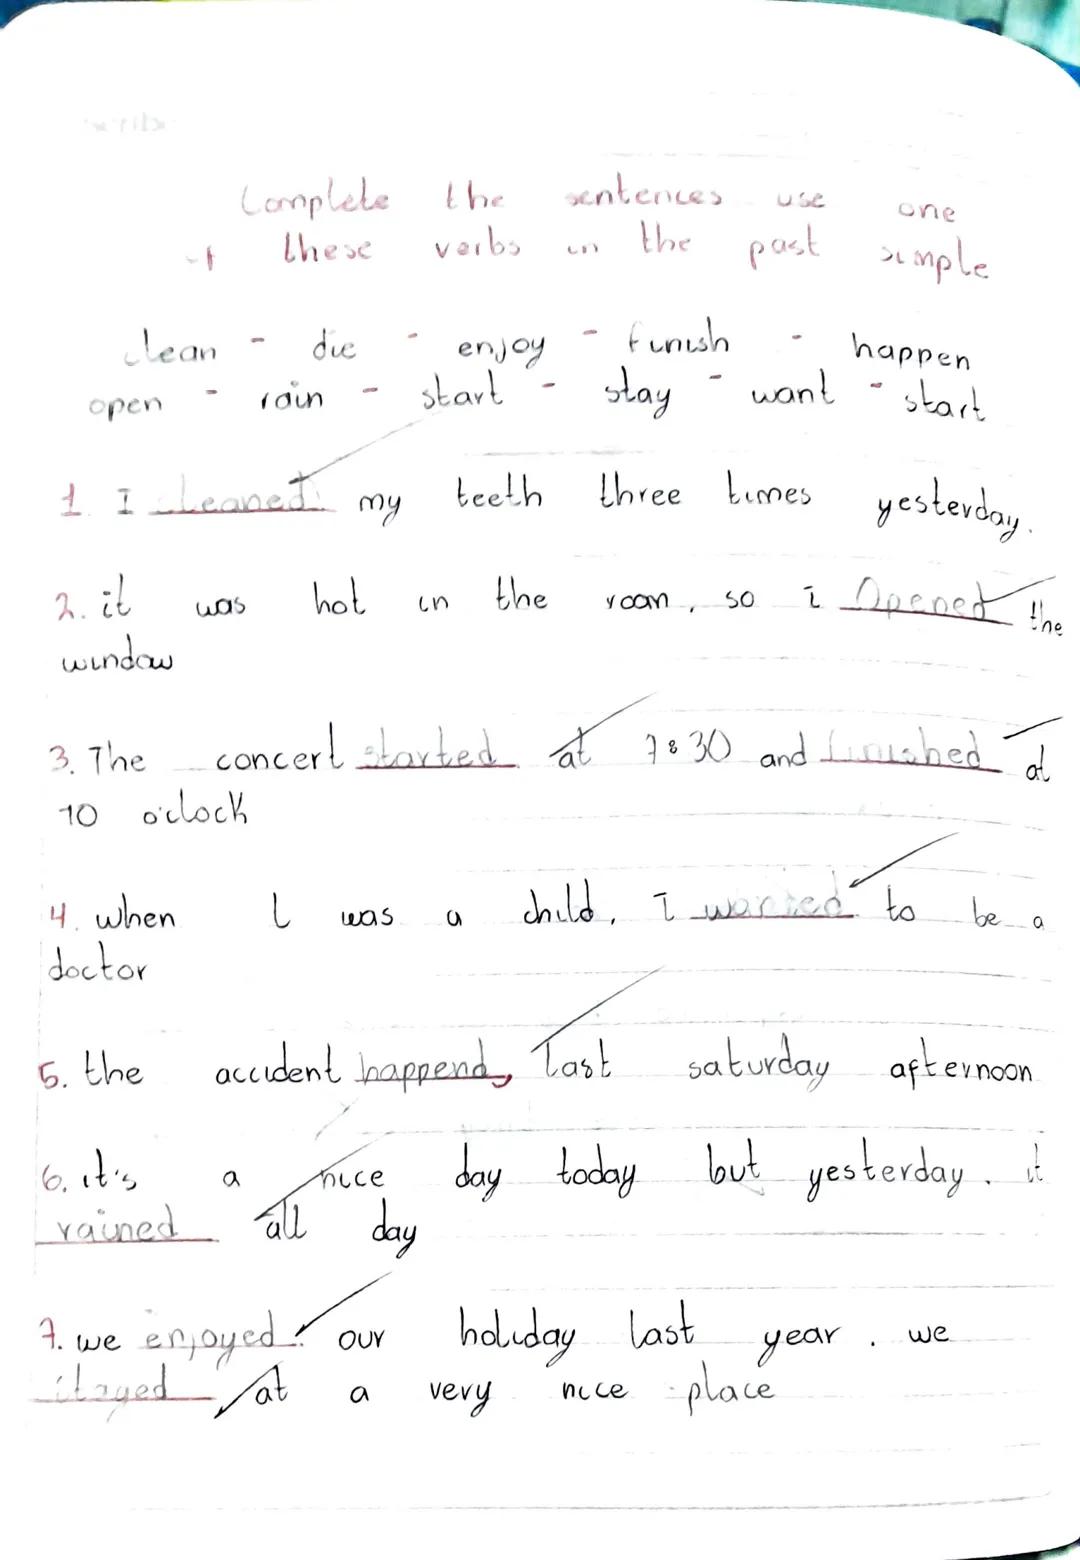 Complete the sentences use one
of these verbs in the past simple
clean - die - enjoy - finish - happen
open - rain - start - stay - want - start
1. I cleaned my teeth three times yesterday.
2. it was hot in the room, so i Opened the
window
3. The concert started at 7:30 and finished at
10 o'clock
4. when I was a child, I wanted to be a
doctor
5. the accident happend, last saturday afternoon
6. it's a nice day today but yesterday. it
rained all day
7. we enjoyed our holiday last year. we
stayed at a very nice place